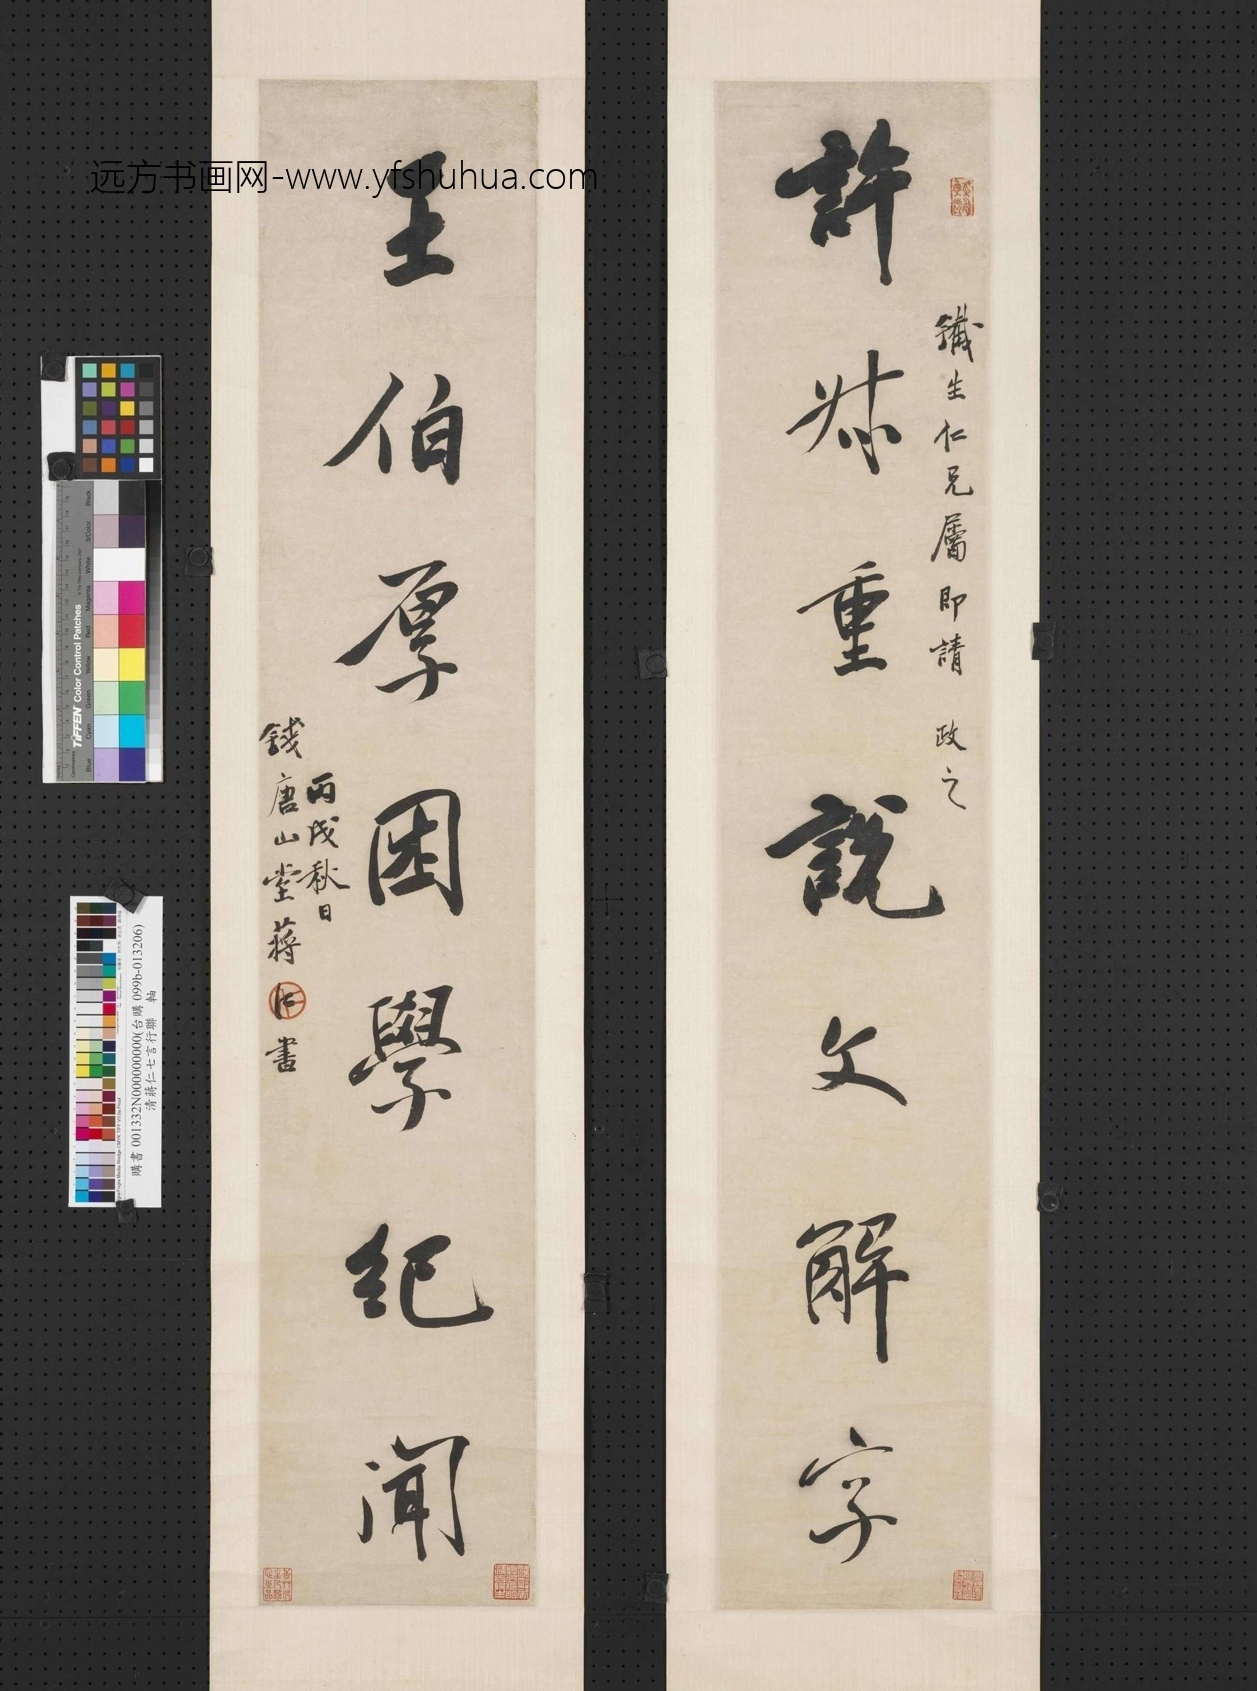 远方书画网-www.yfshuhua.com
許尗重說文解字
鐵生仁兄屬即請 政之
王伯厚困學紀聞
丙戌秋日
錢唐山堂蔣仁書
TIFFEN Color Control Patches
Blue Cyan Green Yellow Red Magenta White 3/Color Black
購書 001332N000000000(台購 099b-013206)
清蔣仁七言行聯 軸